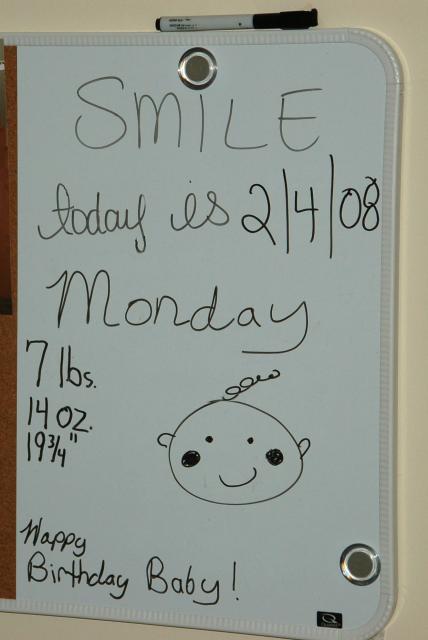 SMILE
today is 2/4/08
Monday
7 lbs.
14 oz.
19 3/4"
Happy
Birthday Baby!